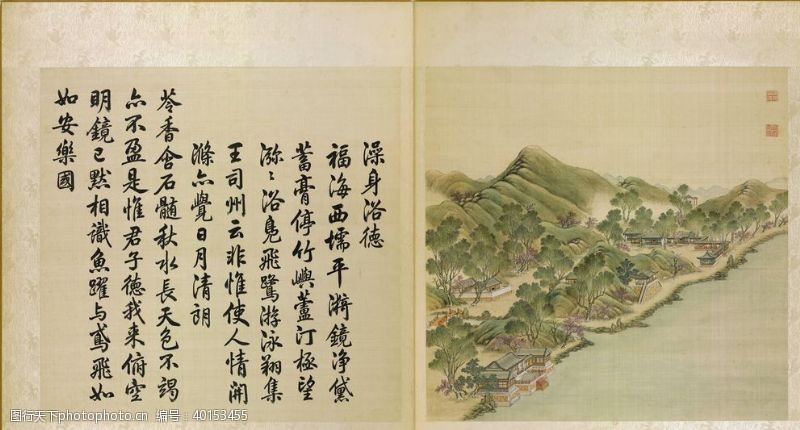 澡身浴德
福海西壖平漪鏡淨黛
蓄膏停竹嶼蘆汀極望
㳽〻浴鳧飛鷺游泳翔集
王司州云非惟使人情開
滌亦覺日月清朗
苓香含石髓秋水長天色不竭
亦不盈是惟君子德我来俯空
明鏡已默相識魚躍与鳶飛如
如安樂國
图行天下photophoto.cn 编号：40153455